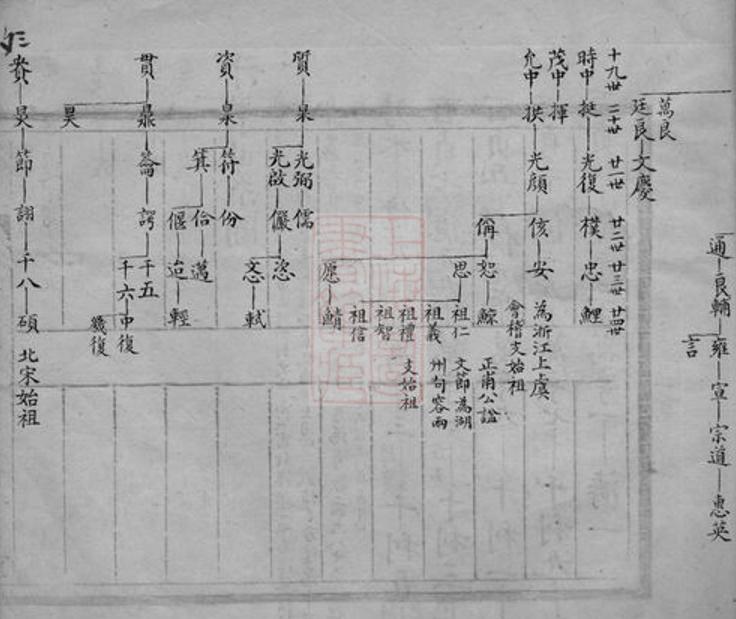 通 良輔 雍 宣 宗道 惠英
言
萬良
廷良 文慶
十九世 二十世 廿一世 廿二世 廿三世 廿四世
時中 挺 光復 樸 忠 鯉
茂中 揮
允中 拱 光顔 侅 安 為浙江上虞
會稽支始祖
偁 恕 鯨 正甫公諡
思 祖仁 文節為湖
祖義 州句容兩
祖禮 支始祖
祖智
祖信
愿 鯖
質 杲 光弼 儒
光啟 儼 恣
忞 軾
資 泉 符 份
箕 佮 邁
偃 迨 輕
貫 鼎 崙 諤 千五
千六 中復
幾復
昊
賁 昃 節 詡 千八 碩 北宋始祖